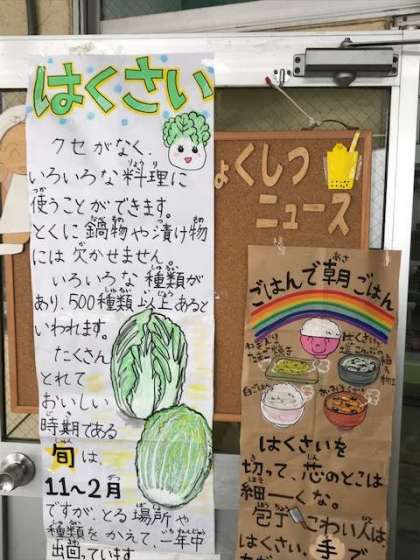 はくさい
クセがなく、
いろいろな料理に
使うことができます。
とくに鍋物や漬け物
には欠かせません。
いろいろな種類が
あり、500種類以上あると
いわれます。
たくさん
とれて
おいしい
時期である
旬は、
11〜2月
ですが、とる場所や
種類をかえて、一年中
出回っています
ょくしつ
ニュース
ごはんで朝ごはん
はくさいを
切って、芯のとこは
細ーくな。
包丁こわい人は
はくさい、手で